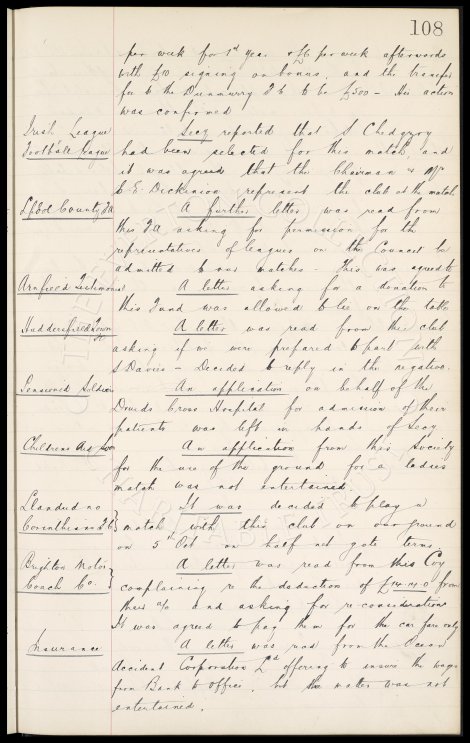 108
per week for 1st year & £6 per week afterwards
with £10 signing on bonus, and the transfer
fee to the Dunmurry F C to be £500 - His action
was confirmed
Irish League Football League
Secy reported that S Chedgzoy
had been selected for this match, and
it was agreed that the Chairman & Mr
C. E. Dickinson represent the club at the match
L'pool County FA
A further letter was read from
this F A asking for permission for the
representatives of leagues on the Council be
admitted to our matches - This was agreed to
Arnfield Testimonial
A letter asking for a donation to
this Fund was allowed to lie on the table
Huddersfield Town FC
A letter was read from this club
asking if we were prepared to part with
S Davies - Decided to reply in the negative.
Pensioned Soldiers
An application on behalf of the
Druids Cross Hospital for admission of their
patients was left in hands of Secy
Childrens Aid Soc
An application from this Society
for the use of the ground for a ladies
match was not entertained.
Llandudno
It was decided to play a
Corinthians F.C.
match with this club on our ground
on 5th Oct on half net gate terms
Brighton Motor Coach Co.
A letter was read from this Coy
complaining re the deduction of £14.14.0 from
their a/c and asking for re-consideration
It was agreed to pay them for the car fare only
Insurance
A letter was read from the Ocean
Accident Corporation Ltd offering to insure the wages
from Bank to Office, but the matter was not
entertained.